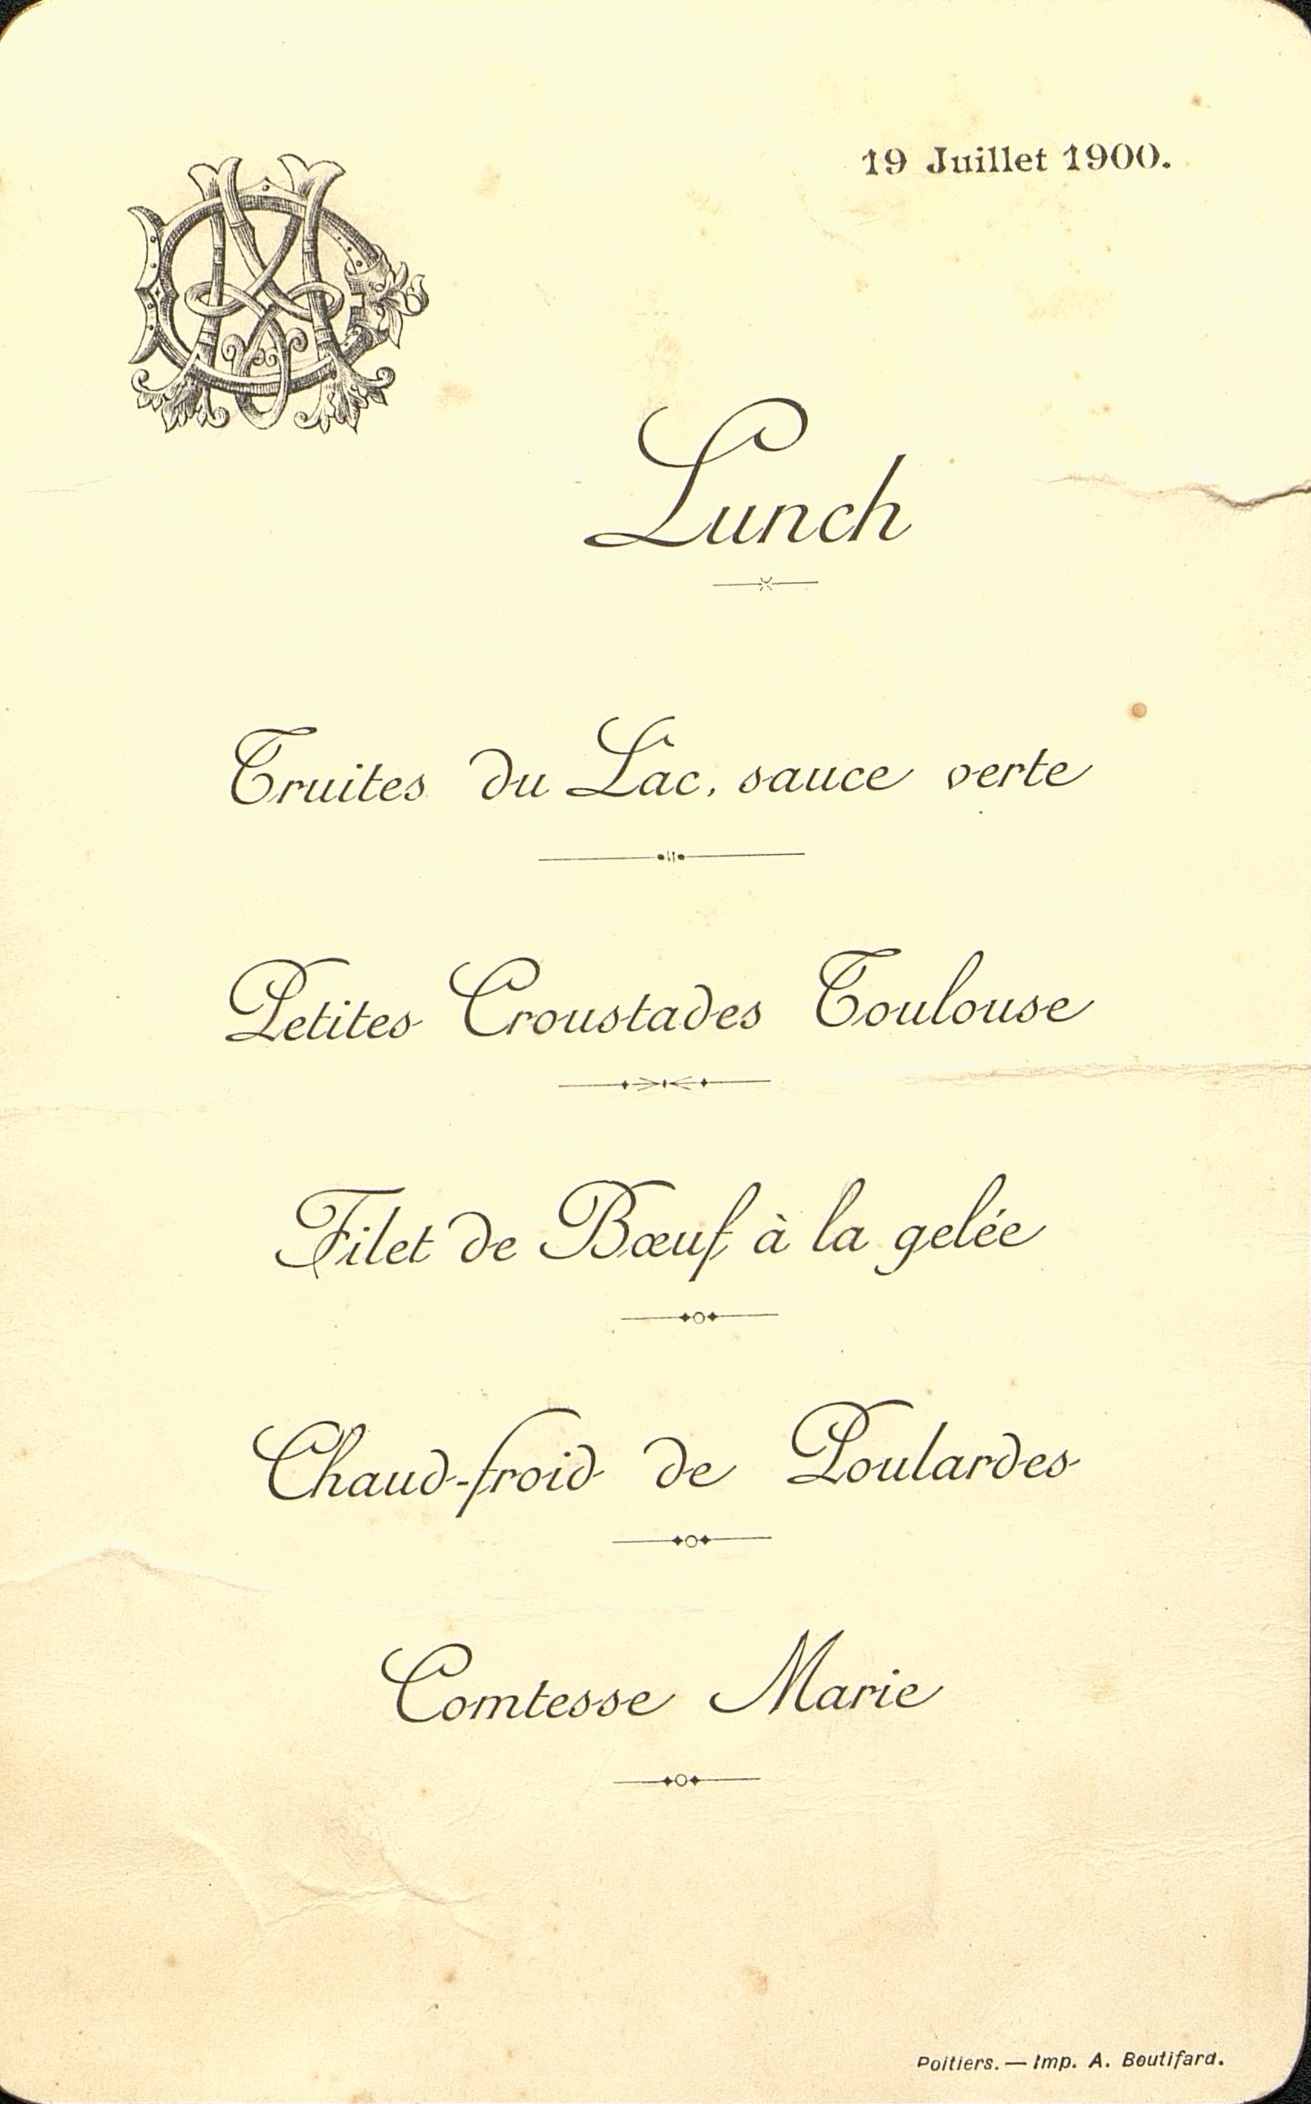 19 Juillet 1900.
Lunch
Truites du Lâc, sauce verte
Petites Croustades Toulouse
Filet de Bœuf à la gelée
Chaud-froid de Poulardes
Comtesse Marie
Poitiers. — Imp. A. Boutifard.